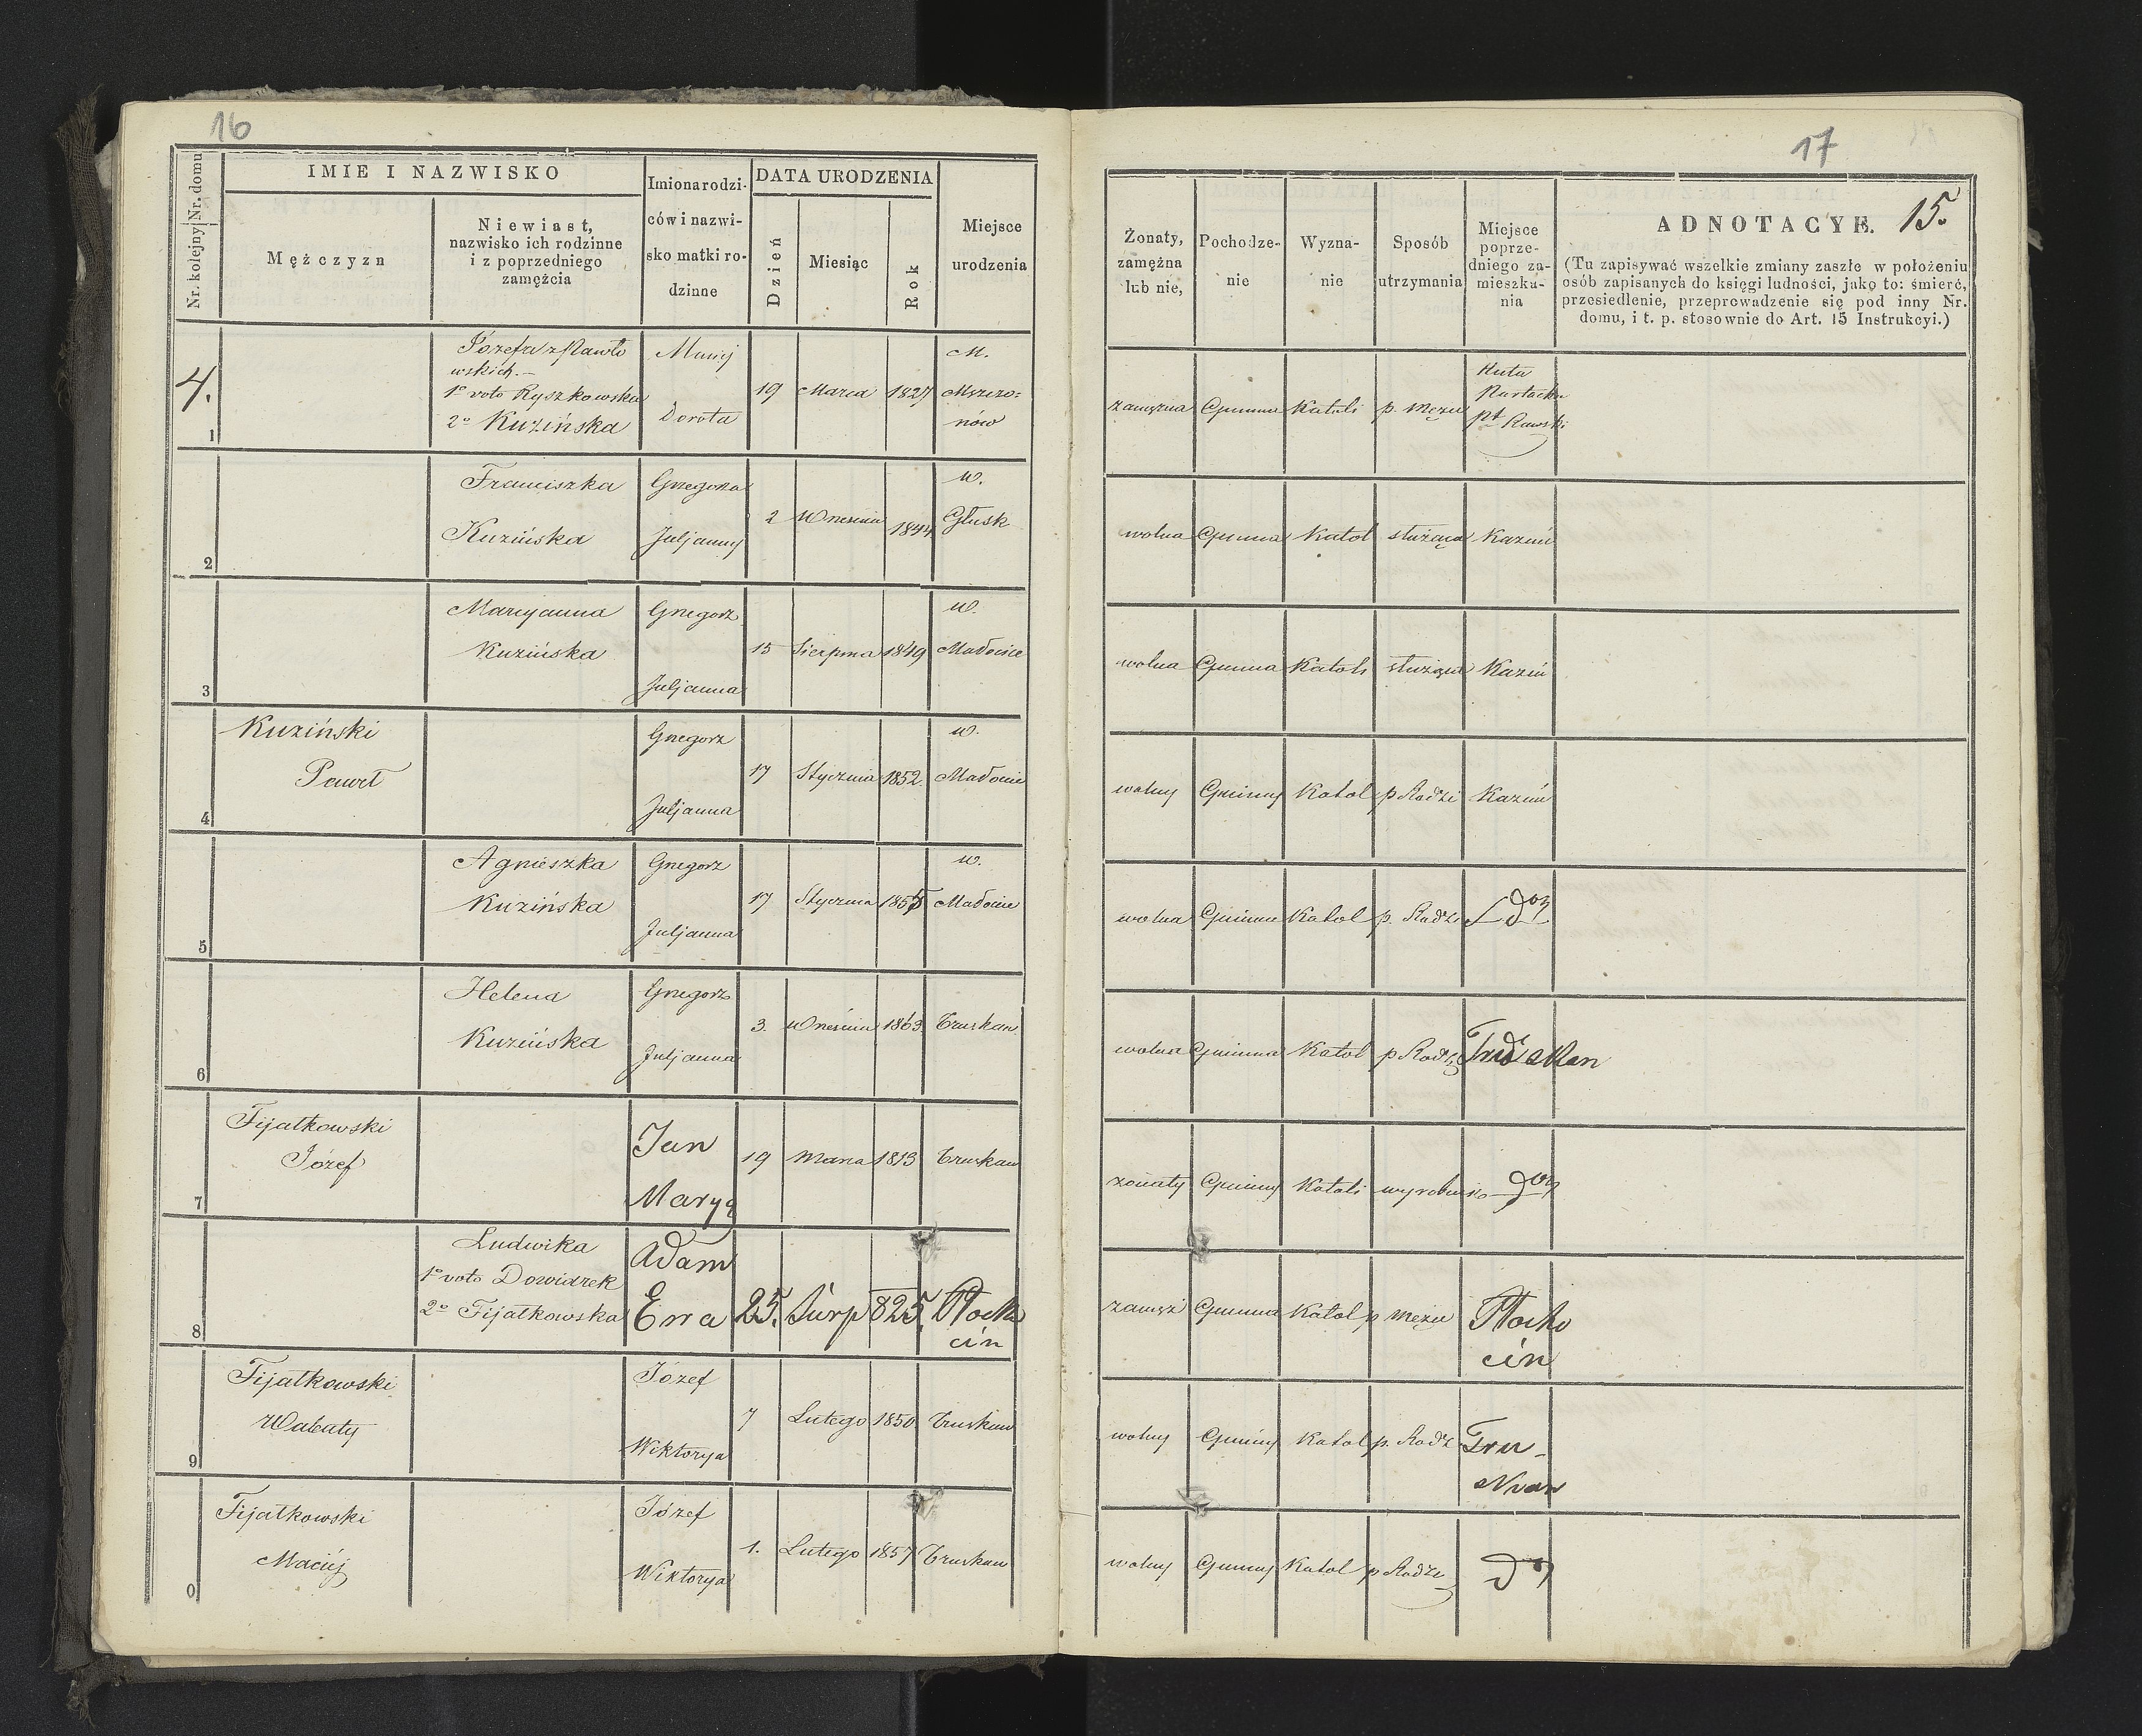 16
Nr. kolejny Nr. domu
IMIE I NAZWISKO
Mężczyzn
Niewiast,
nazwisko ich rodzinne
i z poprzedniego
zamęźcia
Imiona rodzi-
ców i nazwi-
sko matki ro-
dzinne
DATA URODZENIA
Dzień
Miesiąc
Rok
Miejsce
urodzenia
4.
1
Józefa z Pawło
wskich.—
1o voto Ryszkowska
2o Kuzińska
Maciej
Dorota
19 Marca 1827
M.
Mszczo=
nów
2
Franciszka
Kuzińska
Grzegorza
Juljanny
2 Wrzesnia 1844
w.
Głusk
3
Maryanna
Kuzińska
Grzegorz
Juljanna
15 Sierpnia 1849
w.
4
Kuziński
Paweł
Grzegorz
Juljanna
17 Stycznia 1852
w.
5
Agnieszka
Kuzińska
Grzegorz
Juljanna
17 Stycznia 1855
w.
6
Helena
Kuzińska
Grzegorz
Juljanna
3. Wrześnie 1863. Truskaw
7
Fijałkowski
Józef
Jan
Marya
19 Marca 1813 Truskaw
8
Ludwika
1o voto Dowidzek
2o Fijałkowska
Adam
Ewa
25. Sierp 825.
cin
9
Fijałkowski
Walenty
Józef
Wiktorya
7 Lutego 1850 Truskaw
0
Fijałkowski
Maciej
Józef
Wiktorya
1. Lutego 1857 Truskaw
17
15.
Żonaty,
zamężna
lub nie,
Pochodze-
nie
Wyzna-
nie
Sposób
utrzymania
Miejsce
poprze-
dniego za-
mieszka-
nia
ADNOTACYE.
(Tu zapisywać wszelkie zmiany zaszłe w położeniu
osób zapisanych do księgi ludności, jako to: śmierć,
przesiedlenie, przeprowadzenie się pod inny Nr.
domu, i t. p. stosownie do Art. 15 Instrukcyi.)
zamężna Gminna Katoli p. Mężu
Huta
Pt Rawski
wolna Gminna Katol służąca Kazuń
wolna Gminna Katoli służąca Kazuń
wolny Gminny Katol p Rodzi Kazuń
wolna Gminna Katol p. Rodz
wolna Gminna Katol p Rodz
żonaty Gminny Katoli wyrobnik
zamęż Gminna Katol p Mężu
cin
wolny Gminny Katol p. Rodz Tru-
skaw
wolny Gminny Katol p Rodzi